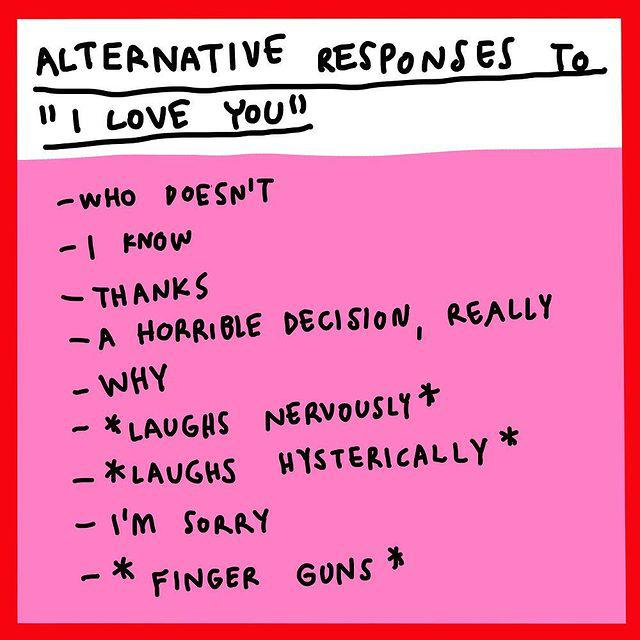 ALTERNATIVE RESPONSES TO
"I LOVE YOU"
- WHO DOESN'T
- I KNOW
- THANKS
- A HORRIBLE DECISION, REALLY
- WHY
- *LAUGHS NERVOUSLY*
- *LAUGHS HYSTERICALLY*
- I'M SORRY
- * FINGER GUNS *